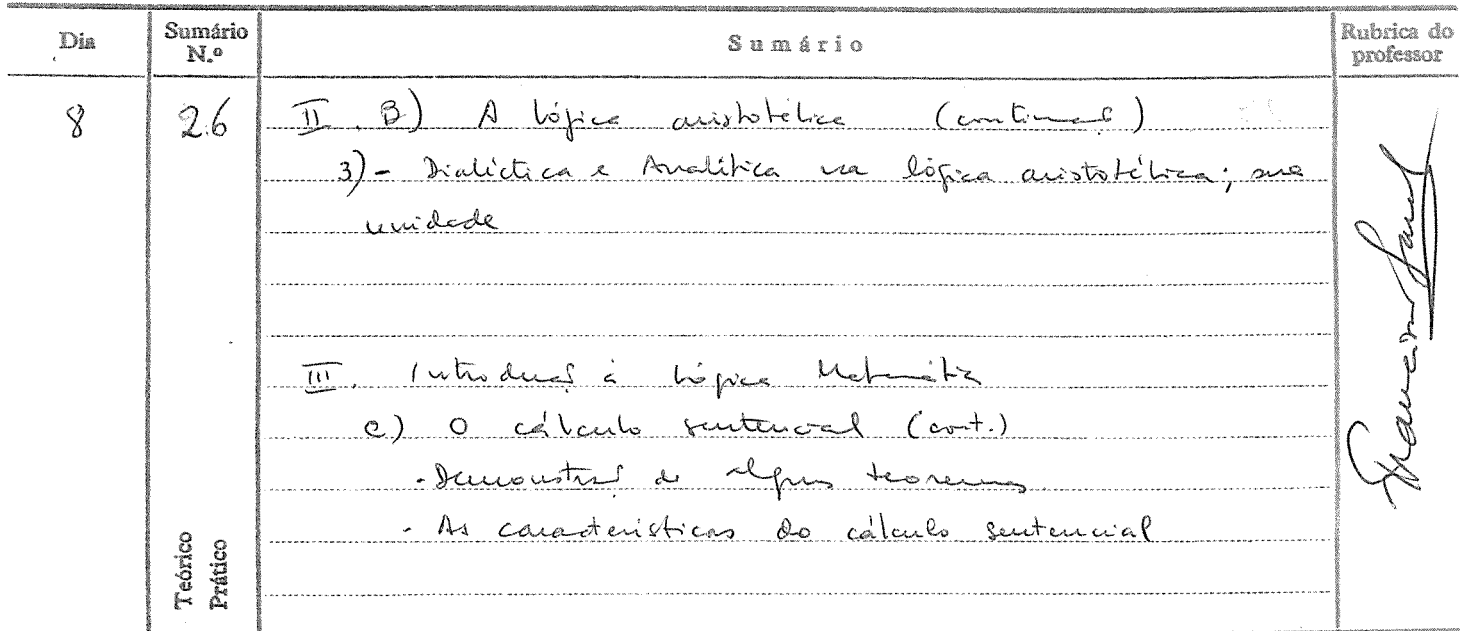 Dia Sumário N.º Sumário Rubrica do professor
8 26 II. B) A lógica aristotélica (continuação)
3) - Dialéctica e Analítica na lógica aristotélica; sua
unidade
III. Introdução à Lógica Matemática
c) O cálculo sentencial (cont.)
- Demonstração de alguns teoremas
- As características do cálculo sentencial
Teórico
Prático